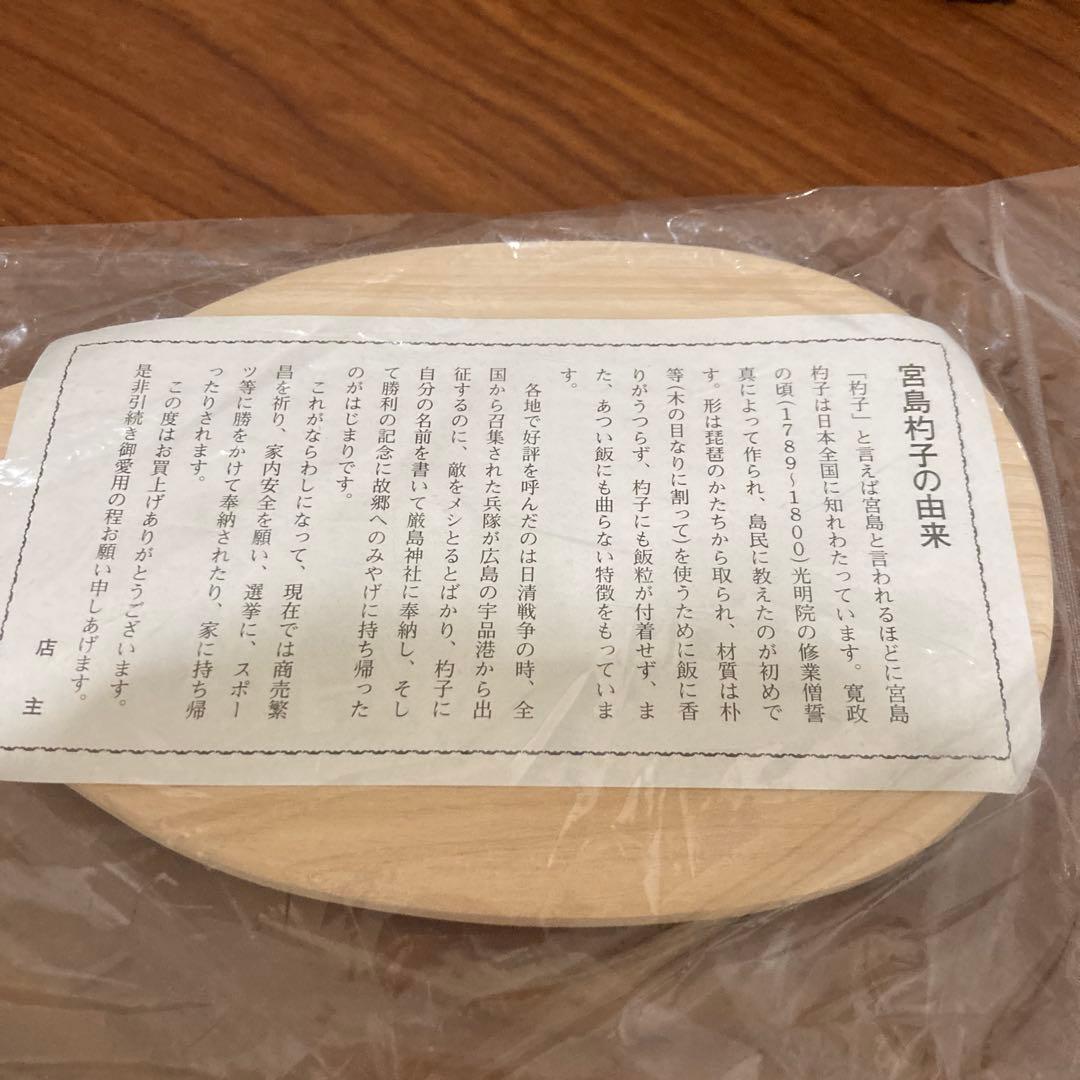 宮島杓子の由来
「杓子」と言えば宮島と言われるほどに宮島
杓子は日本全国に知れわたっています。寛政
の頃(1789〜1800)光明院の修業僧誓
真によって作られ、島民に教えたのが初めで
す。形は琵琶のかたちから取られ、材質は朴
等(木の目なりに割って)を使うために飯に香
りがうつらず、杓子にも飯粒が付着せず、ま
た、あつい飯にも曲らない特徴をもっていま
す。
各地で好評を呼んだのは日清戦争の時、全
国から召集された兵隊が広島の宇品港から出
征するのに、敵をメシとるとばかり、杓子に
自分の名前を書いて厳島神社に奉納し、そし
て勝利の記念に故郷へのみやげに持ち帰った
のがはじまりです。
これがならわしになって、現在では商売繁
昌を祈り、家内安全を願い、選挙に、スポー
ツ等に勝をかけて奉納されたり、家に持ち帰
ったりされます。
この度はお買上げありがとうございます。
是非引続き御愛用の程お願い申しあげます。
店主